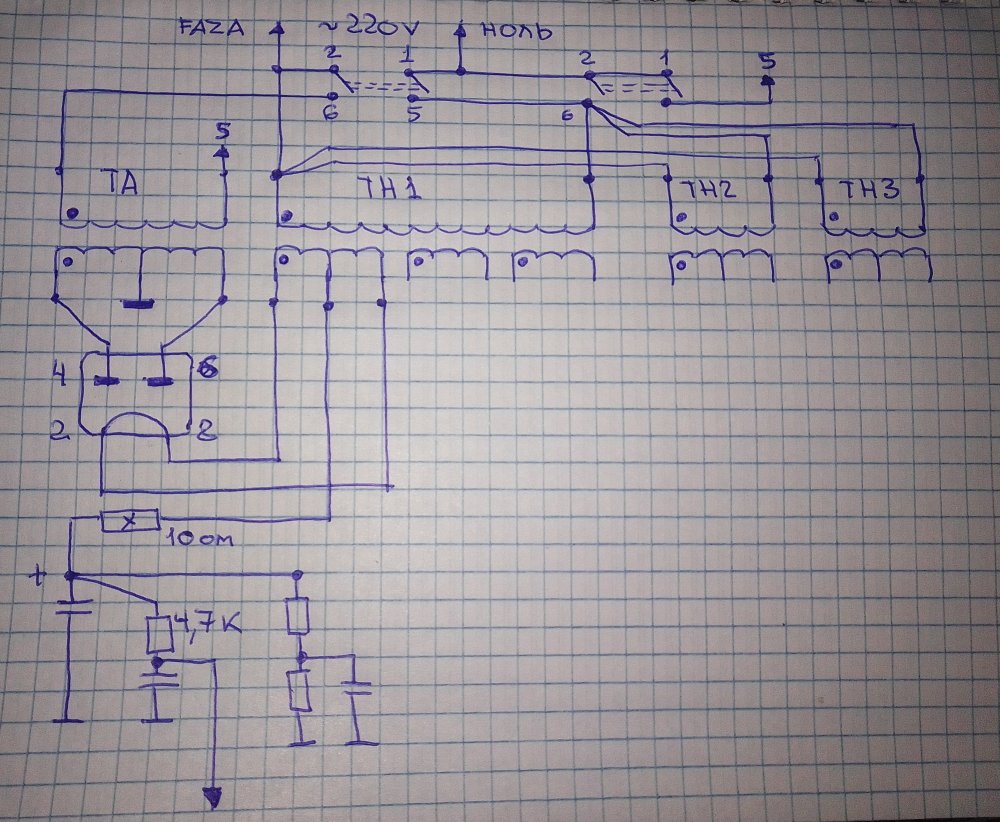 FAZA ~220V НОЛЬ
2 1 2 1 5
6 5 6
5
TA TH1 TH2 TH3
4 6
2 8
X
10 ом
+
4,7K